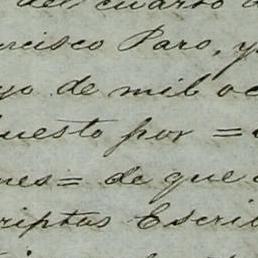 del cuarto
rcisco Paro, y
yo de mil oc
uesto por =
nes = de que
criptas Escri